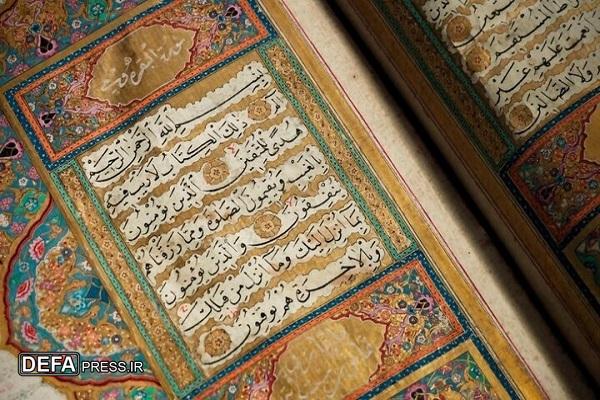 نعمت عليهم غير
ولا الضالين
بسم الله الرحمن الرحيم
الم ذلك الكتاب لا ريب فيه
هدى للمتقين الذين يؤمنون
بالغيب ويقيمون الصلوة ومما رزقناهم
ينفقون والذين يؤمنون
بما أنزل إليك وما أنزل من قبلك
وبالآخرة هم يوقنون
DEFAPRESS.IR